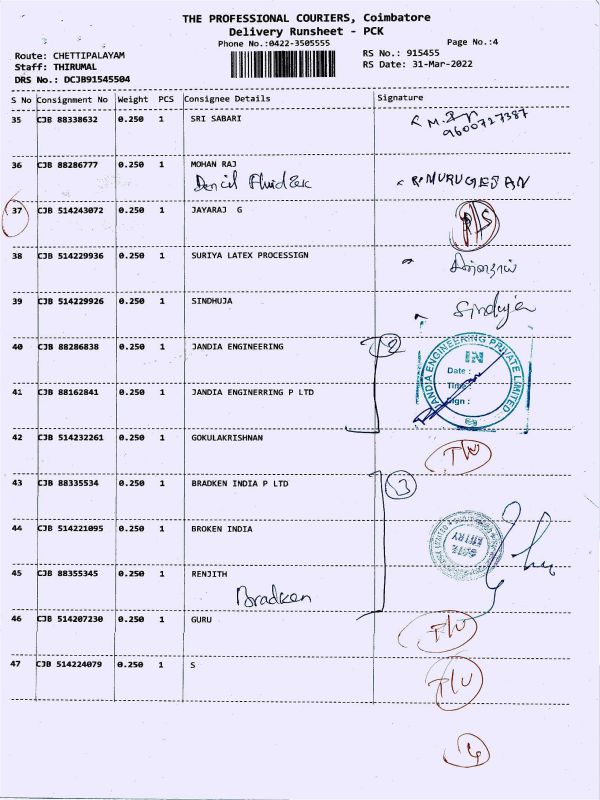 THE PROFESSIONAL COURIERS, Coimbatore
Delivery Runsheet - PCK
Phone No.:0422-3505555
Page No.:4
Route: CHETTIPALAYAM
RS No.: 915455
Staff: THIRUMAL
RS Date: 31-Mar-2022
DRS No.: DCJB91545504
S No Consignment No Weight PCS Consignee Details Signature
35 CJB 88338632 0.250 1 SRI SABARI
9600727387
36 CJB 88286777 0.250 1 MOHAN RAJ
MURUGESAN
37 CJB 514243072 0.250 1 JAYARAJ G
38 CJB 514229936 0.250 1 SURIYA LATEX PROCESSIGN
39 CJB 514229926 0.250 1 SINDHUJA
Sinduja
40 CJB 88286838 0.250 1 JANDIA ENGINEERING
2
JANDIA ENGINEERING PRIVATE LIMITED
IN
Date :
Time :
Sign :
41 CJB 88162841 0.250 1 JANDIA ENGINERRING P LTD
42 CJB 514232261 0.250 1 GOKULAKRISHNAN
43 CJB 88335534 0.250 1 BRADKEN INDIA P LTD
3
44 CJB 514221095 0.250 1 BROKEN INDIA
GATE
ENTRY
45 CJB 88355345 0.250 1 RENJITH
Bradken
46 CJB 514207230 0.250 1 GURU
47 CJB 514224079 0.250 1 S